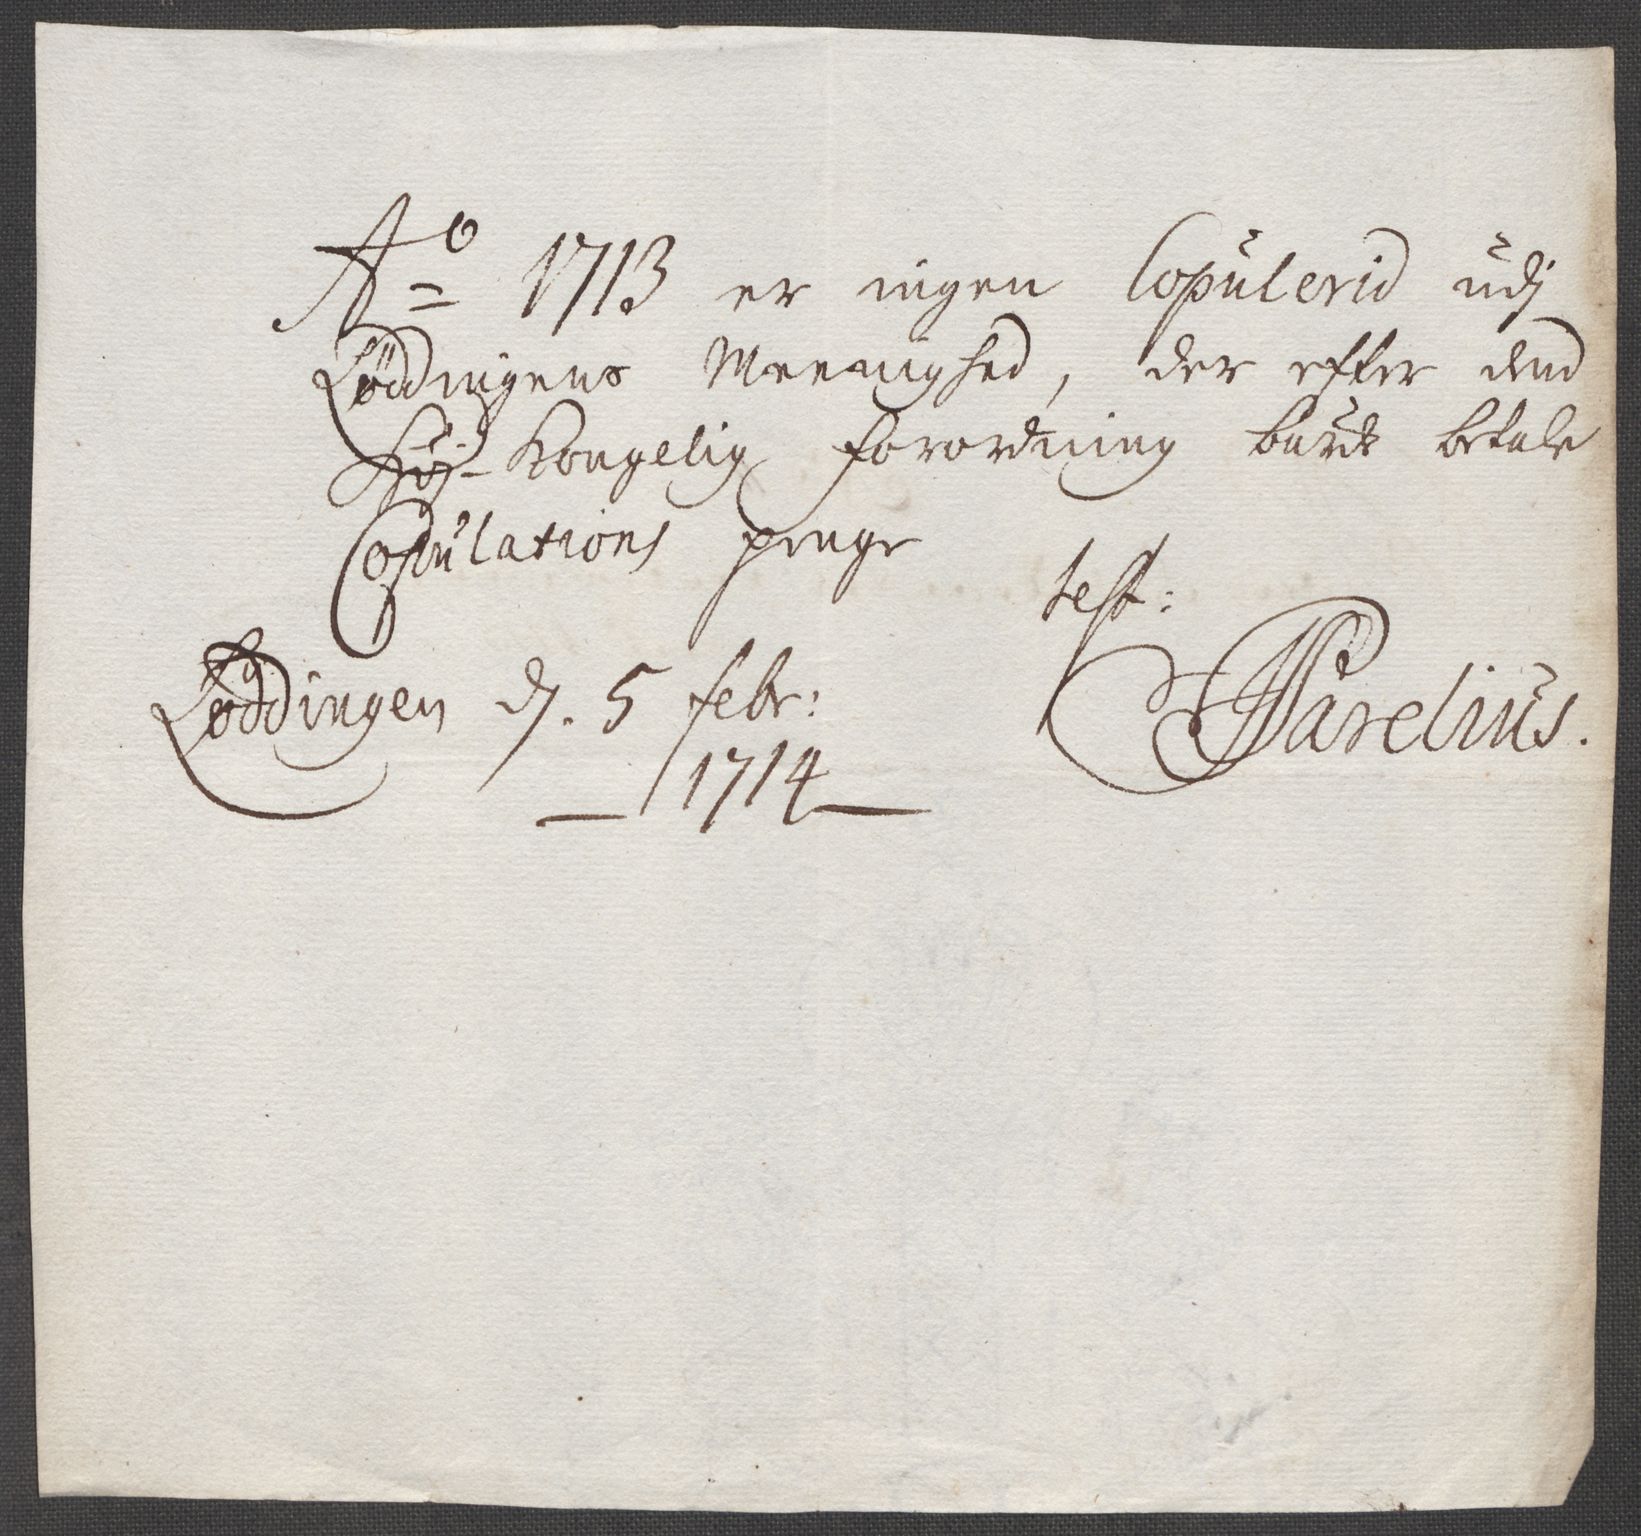 Ao 1713 er ingen Copulerid udj
Løddingens Meenighed, der efter dend
Høj-Kongelig forordning burde betale
Copulations penge
test:
Løddingen d. 5 febr:
1714
Parelius.